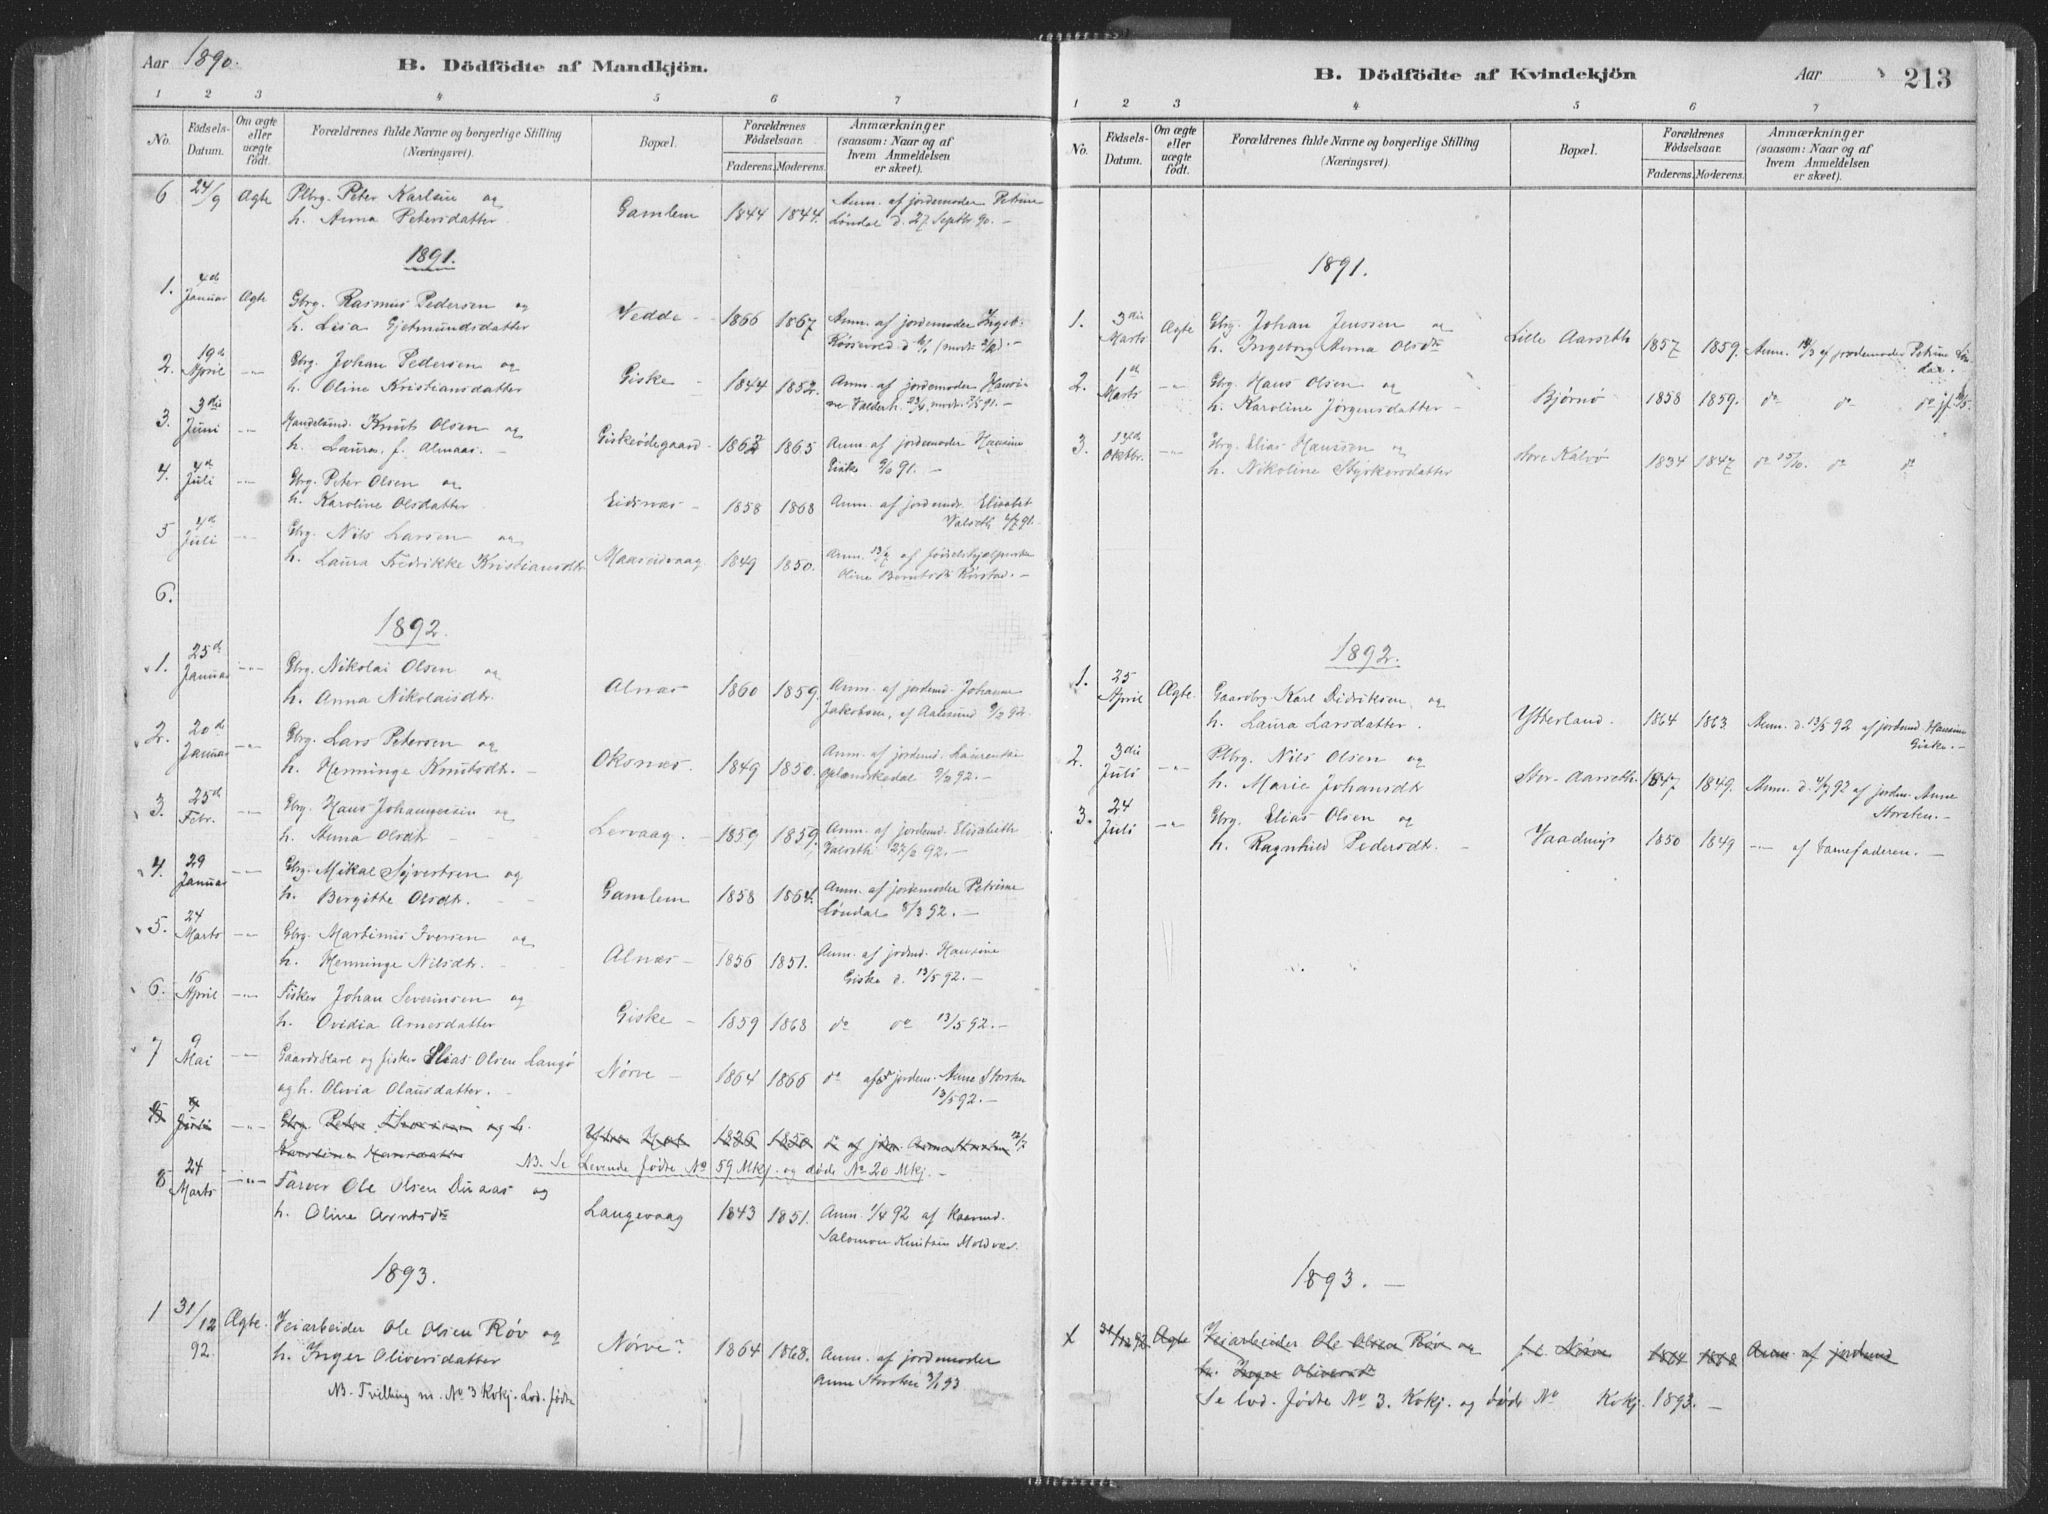 Aar 1890.
B. Dödfödte af Mandkjön.
1 2 3 4 5 6 7
No. Födsels-Datum. Om ægte eller uægte födt. Forældrenes fulde Navne og borgerlige Stilling (Næringsvei). Bopæl. Forældrenes Födselsaar. Faderens. Moderens. Anmærkninger (saasom: Naar og af hvem Anmeldelsen er skeet).
6 24/9 Ægte Plbrg. Peter Karlsen og Gamlem 1844 1844. Anm. af jordemoder Petrine
h. Anna Petersdatter Løndal d. 27. Septbr 90. —
1891.
1. 4de Januar Ægte Gbrg. Rasmus Pedersen og Vedde - 1866 1867 Anm. af jordemoder Ingeb.
h. Lisa Gjetmundsdatter
2. 19de April -"- Gbrg. Johan Pedersen og Giske - 1844 1852. Anm. af jordemoder Hansi-
h. Oline Kristiansdatter ne Valderh. 23/4, modt. 3/5 91. —
3. 3die Juni -"- Handelsmd. Knut Olsen og Giskeødegaard 1862 1865 Anm. af jordemoder Hansine
h. Laura f. Alnaas. - Giske 91. —
4. 4de Juli -"- Gbrg. Peter Olsen og Eidsnæs - 1858 1868 Anm. af jordemdr. Elisabet
h. Karoline Olsdatter Valseth 91.
5 Juli -"- Gbrg. Nils Larsen og Maaseidvaag 1849 1850. Anm. 13/7 af fødselshjælperske
h. Laura Fredrikke Kristiansdtr Oline Berntsdtr Rørstad. —
6.
1892.
1. 25de Januar -"- Gbrg. Nikolai Olsen og Alnæs 1860 1859. Anm. af jordemd. Johanne
h. Anna Nikolaisdtr. Jakobsen, af Aalesund 92.
2. 20de Januar -"- Gbrg. Lars Petersen og Oksnæs. 1849 1850. Anm. af jordemd. Laurentse
h. Henninge Knutsdtr. - Oplændskedal 92. —
3. 25de Febr. -"- Gbrg. Hans Johannessen og Lervaag. - 1859 1859. Anm. af jordemd. Elisabeth
h. Anna Olsdtr Valseth 27/2 92. —
4. 29 Januar -"- Gbrg. Mikal Syvertsen og Gamlem 1858 1864. Anm. af jordemoder Petrine
h. Bergitte Olsdtr. Løndal 8/3 92. —
5. 24 Marts -"- Gbrg. Martinus Iversen og Alnæs - 1856 1851. Anm. af jordmd. Hansine
h. Henninge Nilsdtr. Giske d. 13/5 92. —
6. 16 April -"- Fisker Johan Severinsen og Giske - 1859 1868 do do 13/5 92. —
h. Ovidia Arnesdatter
7 9 Mai -"- Gaardskarl og fisker Elias Olsen Langø Nørve - 1864 1866 do af jordem. Anne Storsten
og h. Olivia Olausdatter. 13/5 92. —
Juli -"- Gbrg. Peter og h. Ytre Hof 1826 1850 af jdm. Anne Storsten
Karoline Hansdatter NB. Se Levende fødte No 59 Mkj. og døde No 20 Mkj. —
8 24 Marts -"- Farver Ole Olsen Duaas og Langevaag 1843 1851. Anm. 1/4 92 af
h. Oline Arntsdtr Salomon Knutsen Moldvær.
1893.
1 31/12 92. Ægte. Veiarbeider Ole Olsen Røv og Nørve? 1864 1868. Anm. af jordemoder
h. Inger Oliversdatter Anne Storsten 3/1 93
NB. Tvilling m. No 3 Kvkj. Lev. fødte

B. Dödfödte af Kvindekjön Aar 213
1 2 3 4 5 6 7
No. Födsels-Datum. Om ægte eller uægte födt. Forældrenes fulde Navne og borgerlige Stilling (Næringsvei). Bopæl. Forældrenes Födselsaar. Faderens. Moderens. Anmærkninger (saasom: Naar og af hvem Anmeldelsen er skeet).
1891.
1. 3die Marts Ægte Gbrg. Johan Jenssen og Lille Aarseth 1857 1859. Anm. af jordemoder Petrine Løn-
h. Ingeborg Anna Olsdtr dal.
2. 1ste Marts -"- Gbrg. Hans Olsen og Bjørnø 1858 1859. do do do
h. Karoline Jørgensdatter -
3. 13de Oktbr. -"- Gbrg. Elias Hanssen og Store Kalvø 1834 1847 do 15/10. do do
h. Nikoline Styrkorsdatter
1892.
1. 25 April Ægte. Gaardbrg. Karl Didriksen og Ytterland. 1864 1863. Anm. d. 13/5 92 af jordmd Hansine
h. Laura Larsdatter. Giske. —
2. 3die Juli -"- Plbrg. Nils Olsen og Stor-Aarseth 1847 1849. Anm. d. 4/7 92 af jordem. Anne
h. Marie Johansdtr Storsten. —
3. 24 Juli -"- Gbrg. Elias Olsen og Vaadmyr 1850 1849 -"- af barnefaderen. —
h. Ragnhild Pedersdtr. -
1893. —
1 31/12 92 Ægte Veiarbeider Ole Olsen Røv og Nørve 1864 1868 Anm. af jordmd
h. Inger Oliversdtr
Se lev. fødte No 3. Kvkj. og døde No Kvkj. 1893. —